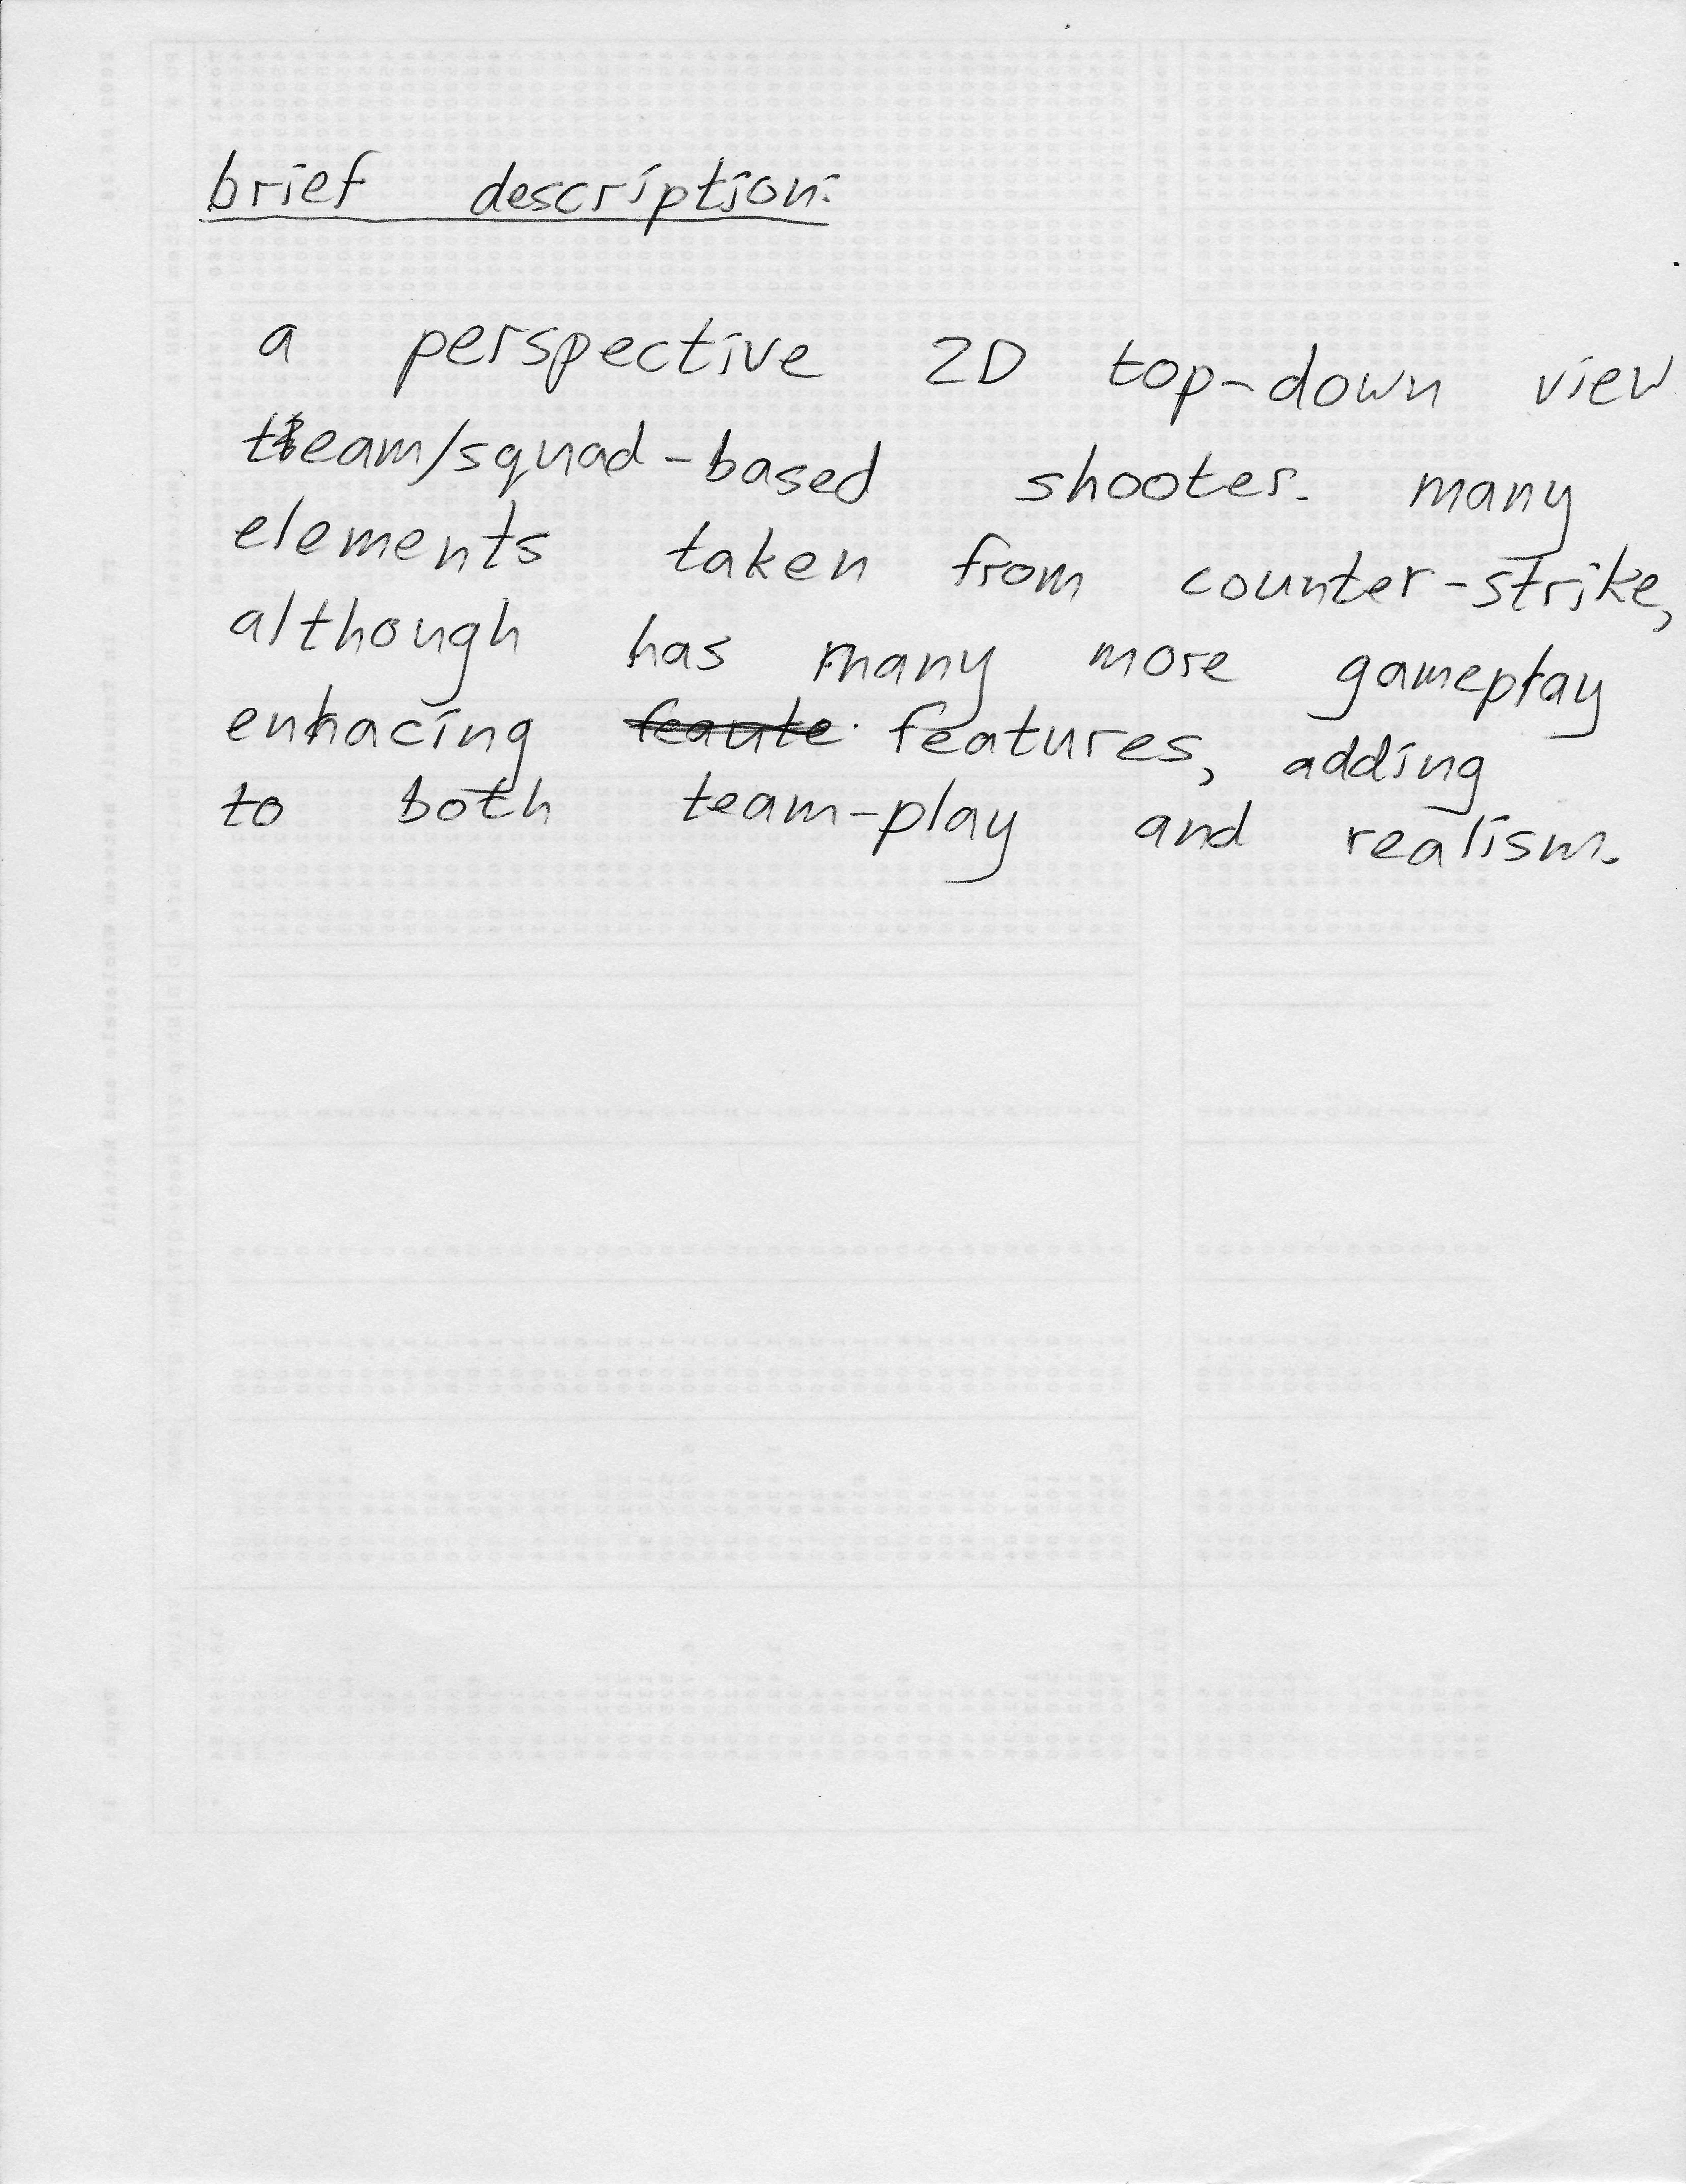 brief description:
a perspective 2D top-down view
team/squad-based shooter. many
elements taken from counter-strike,
although has many more gameplay
enhacing feaute features, adding
to both team-play and realism.